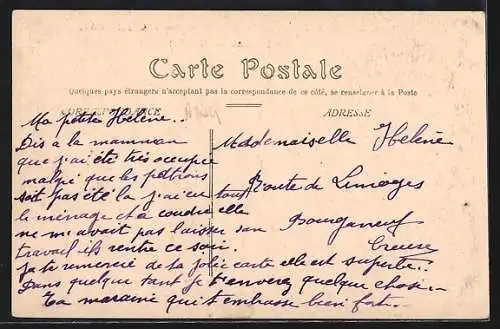 Carte Postale
Quelques pays étrangers n'acceptant pas la correspondance de ce côté, se renseigner à la Poste
CORRESPONDANCE
ADRESSE
Ma petite Hélène..
Dis a la maman
que j'ai été très occupée
malgré que les patrons
soit pas été la j'ai eu tout
le ménage et a coudre elle
ne m'avait pas laisser son
travail ils rentre ce soir.
Je te remercie de ta jolie carte elle est superbe..
Dans quelque tant je t'enverai quelque chose..
Ta maraine qui t'embrasse bien fort..
Mademoiselle Helene
Route de Limoges
Bourganeuf
Creuse